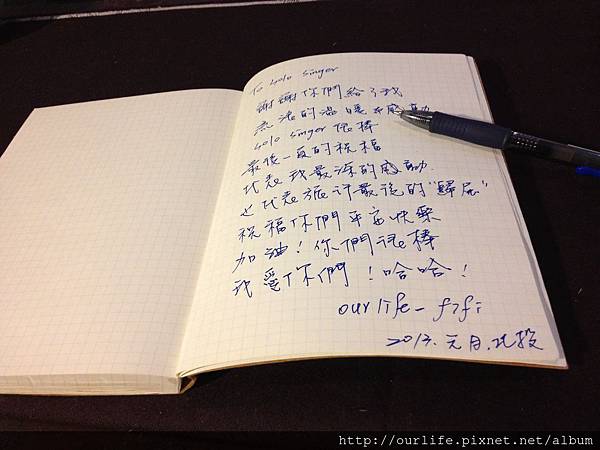 To Solo Singer
謝謝你們給了我
無法的溫暖和感動
Solo Singer 很棒
最後一頁的祝福
代表我最深的感動
也代表旅行最後的"歸屬"
祝福你們平安快樂
加油！你們很棒
我愛你們！哈哈！
ourlife-fifi
2013.元月.北投
http://ourlife.pixnet.net/album